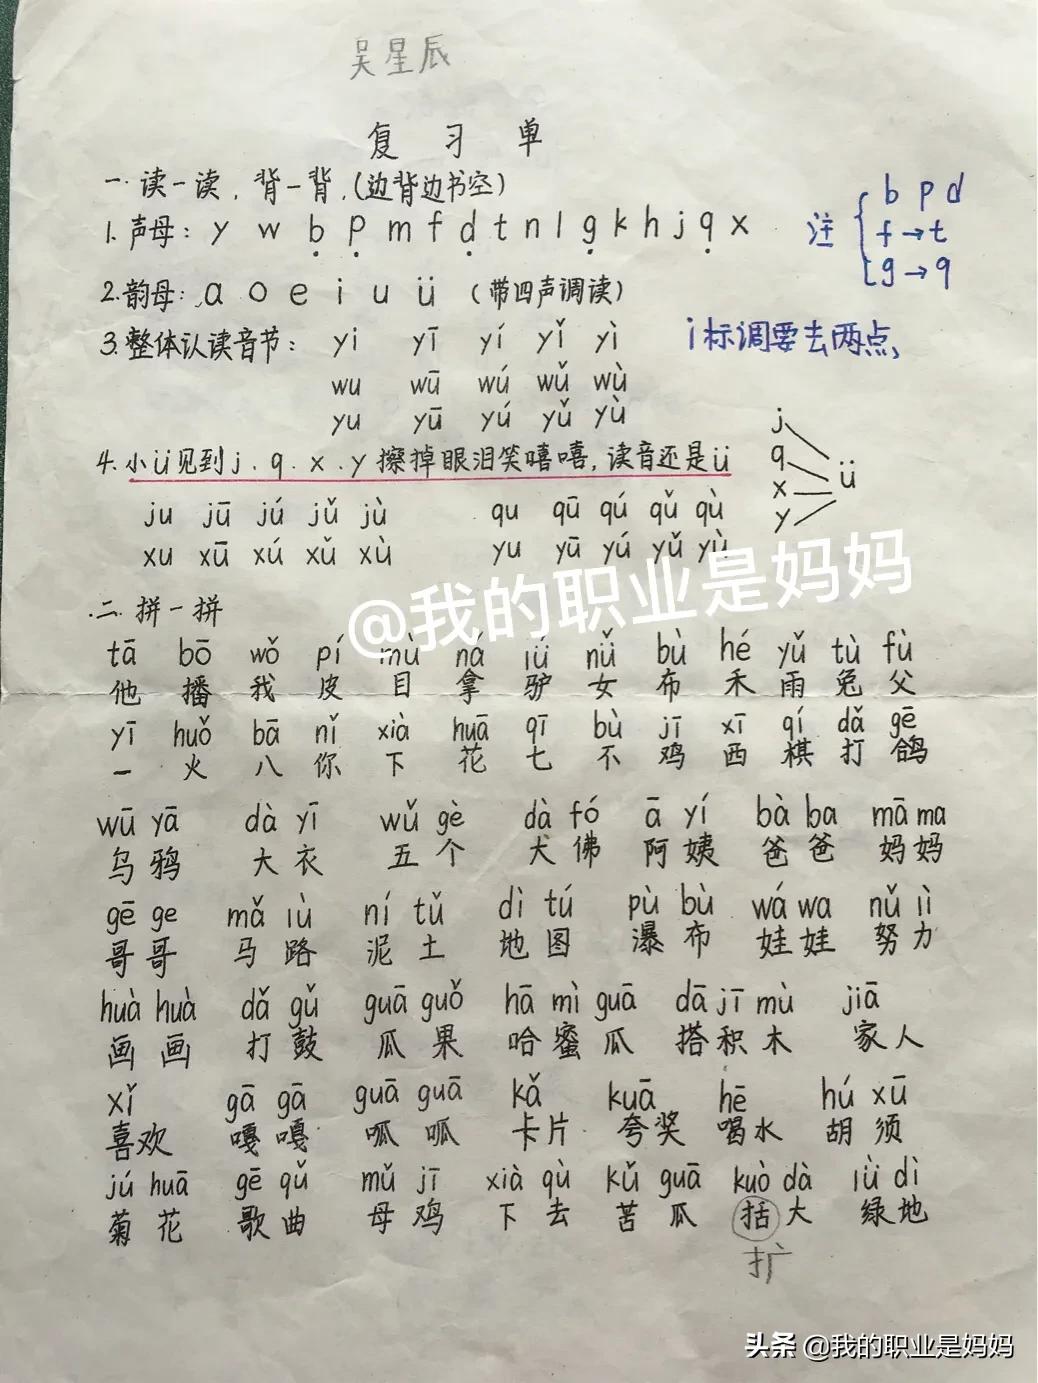 吴星辰
复习单
一.读一读,背一背,(边背边书空)
1.声母: y w b p m f d t n l g k h j q x
注 b p d
f→t
g→q
2.韵母: a o e i u ü (带四声调读)
3.整体认读音节: yi yī yí yǐ yì
i标调要去两点,
wu wū wú wǔ wù
yu yū yú yǔ yù
4.小ü见到j.q.x.y擦掉眼泪笑嘻嘻,读音还是ü
j q x y ü
ju jū jú jǔ jù qu qū qú qǔ qù
xu xū xú xǔ xù yu yū yú yǔ yù
@我的职业是妈妈
二.拼一拼
tā bō wǒ pí mù ná lǘ nǚ bù hé yǔ tù fù
他 播 我 皮 目 拿 驴 女 布 禾 雨 兔 父
yī huǒ bā nǐ xià huā qī bù jī xī qí dǎ gē
一 火 八 你 下 花 七 不 鸡 西 棋 打 鸽
wū yā dà yī wǔ gè dà fó ā yí bà ba mā ma
乌鸦 大衣 五个 大佛 阿姨 爸爸 妈妈
gē ge mǎ lù ní tǔ dì tú pù bù wá wa nǔ lì
哥哥 马路 泥土 地图 瀑布 娃娃 努力
huà huà dǎ gǔ guā guǒ hā mì guā dā jī mù jiā
画画 打鼓 瓜果 哈蜜瓜 搭积木 家人
xǐ gā gā guā guā kǎ kuā hē hú xū
喜欢 嘎嘎 呱呱 卡片 夸奖 喝水 胡须
jú huā gē qǔ mǔ jī xià qù kǔ guā kuò dà lǜ dì
菊花 歌曲 母鸡 下去 苦瓜 括大 绿地
扩
头条 @我的职业是妈妈